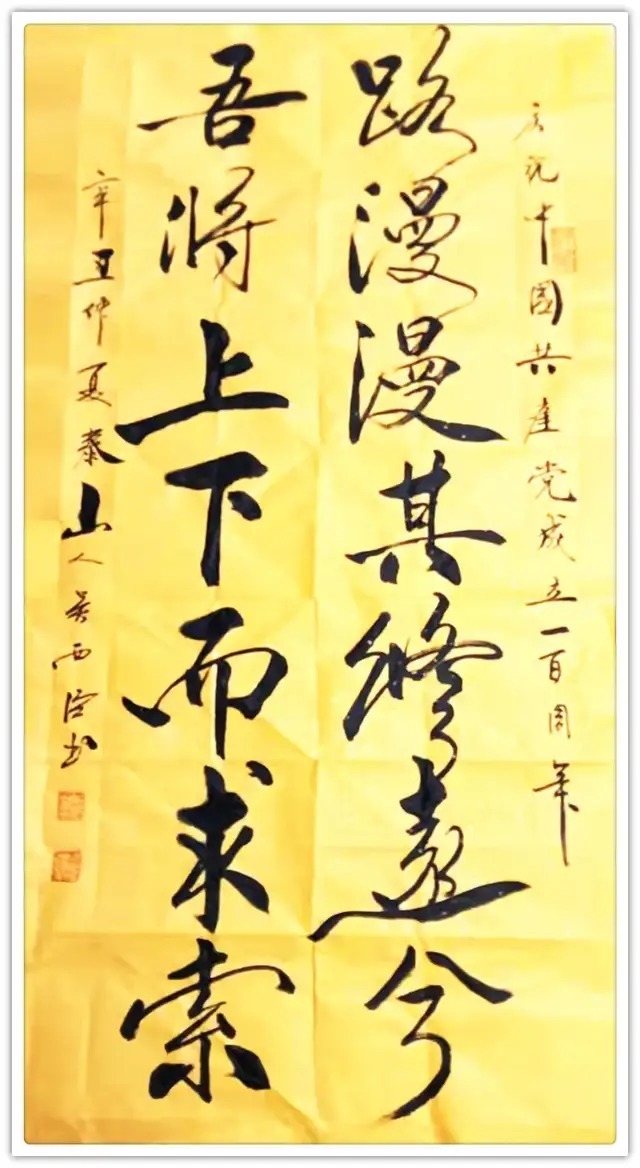 庆祝中国共产党成立一百周年
路漫漫其修远兮
吾将上下而求索
辛丑仲夏泰山人吴西洤书